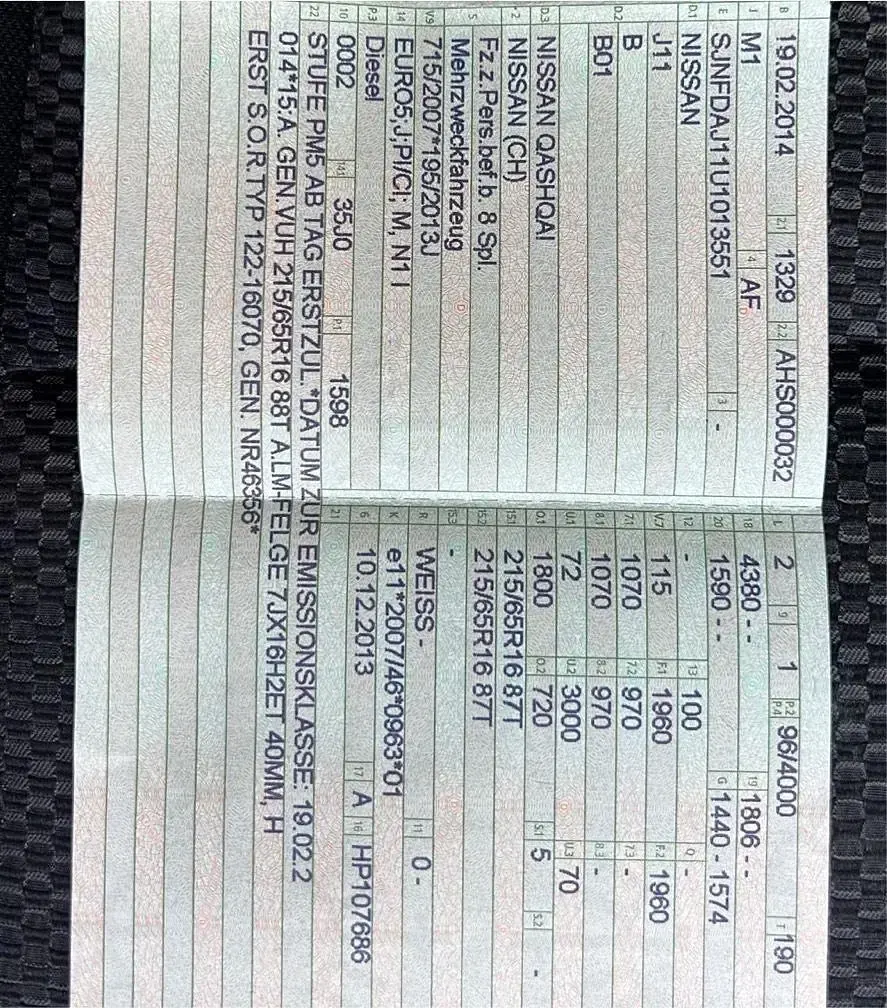 B 19.02.2014 2.1 1329 2.2 AHS000032
J M1 4 AF
E SJNFDAJ11U1013551 3 -
D.1 NISSAN
J11
D.2 B
B01
D.3 NISSAN QASHQAI
2 NISSAN (CH)
5 Fz.z.Pers.bef.b. 8 Spl.
Mehrzweckfahrzeug
V.9 715/2007*195/2013J
14 EURO5;J;PI/CI; M, N1 I
P.3 Diesel
10 0002 14.1 35J0 P.1 1598
L 2 9 1 P.2 P.4 96/4000 T 190
18 4380 - - 19 1806 - -
20 1590 - - G 1440 - 1574
12 - 13 100 Q -
V.7 115 F.1 1960 F.2 1960
7.1 1070 7.2 970 7.3 -
8.1 1070 8.2 970 8.3 -
U.1 72 U.2 3000 U.3 70
O.1 1800 O.2 720 S.1 5 S.2 -
15.1 215/65R16 87T
15.2 215/65R16 87T
15.3 -
R WEISS - 11 0 -
K e11*2007/46*0963*01
6 10.12.2013 17 A 16 HP107686
21
22 STUFE PM5 AB TAG ERSTZUL.*DATUM ZUR EMISSIONSKLASSE: 19.02.2
014*15:A. GEN.VUH 215/65R16 88T A.LM-FELGE 7JX16H2ET 40MM, H
ERST S.O.R.TYP 122-16070, GEN. NR46356*